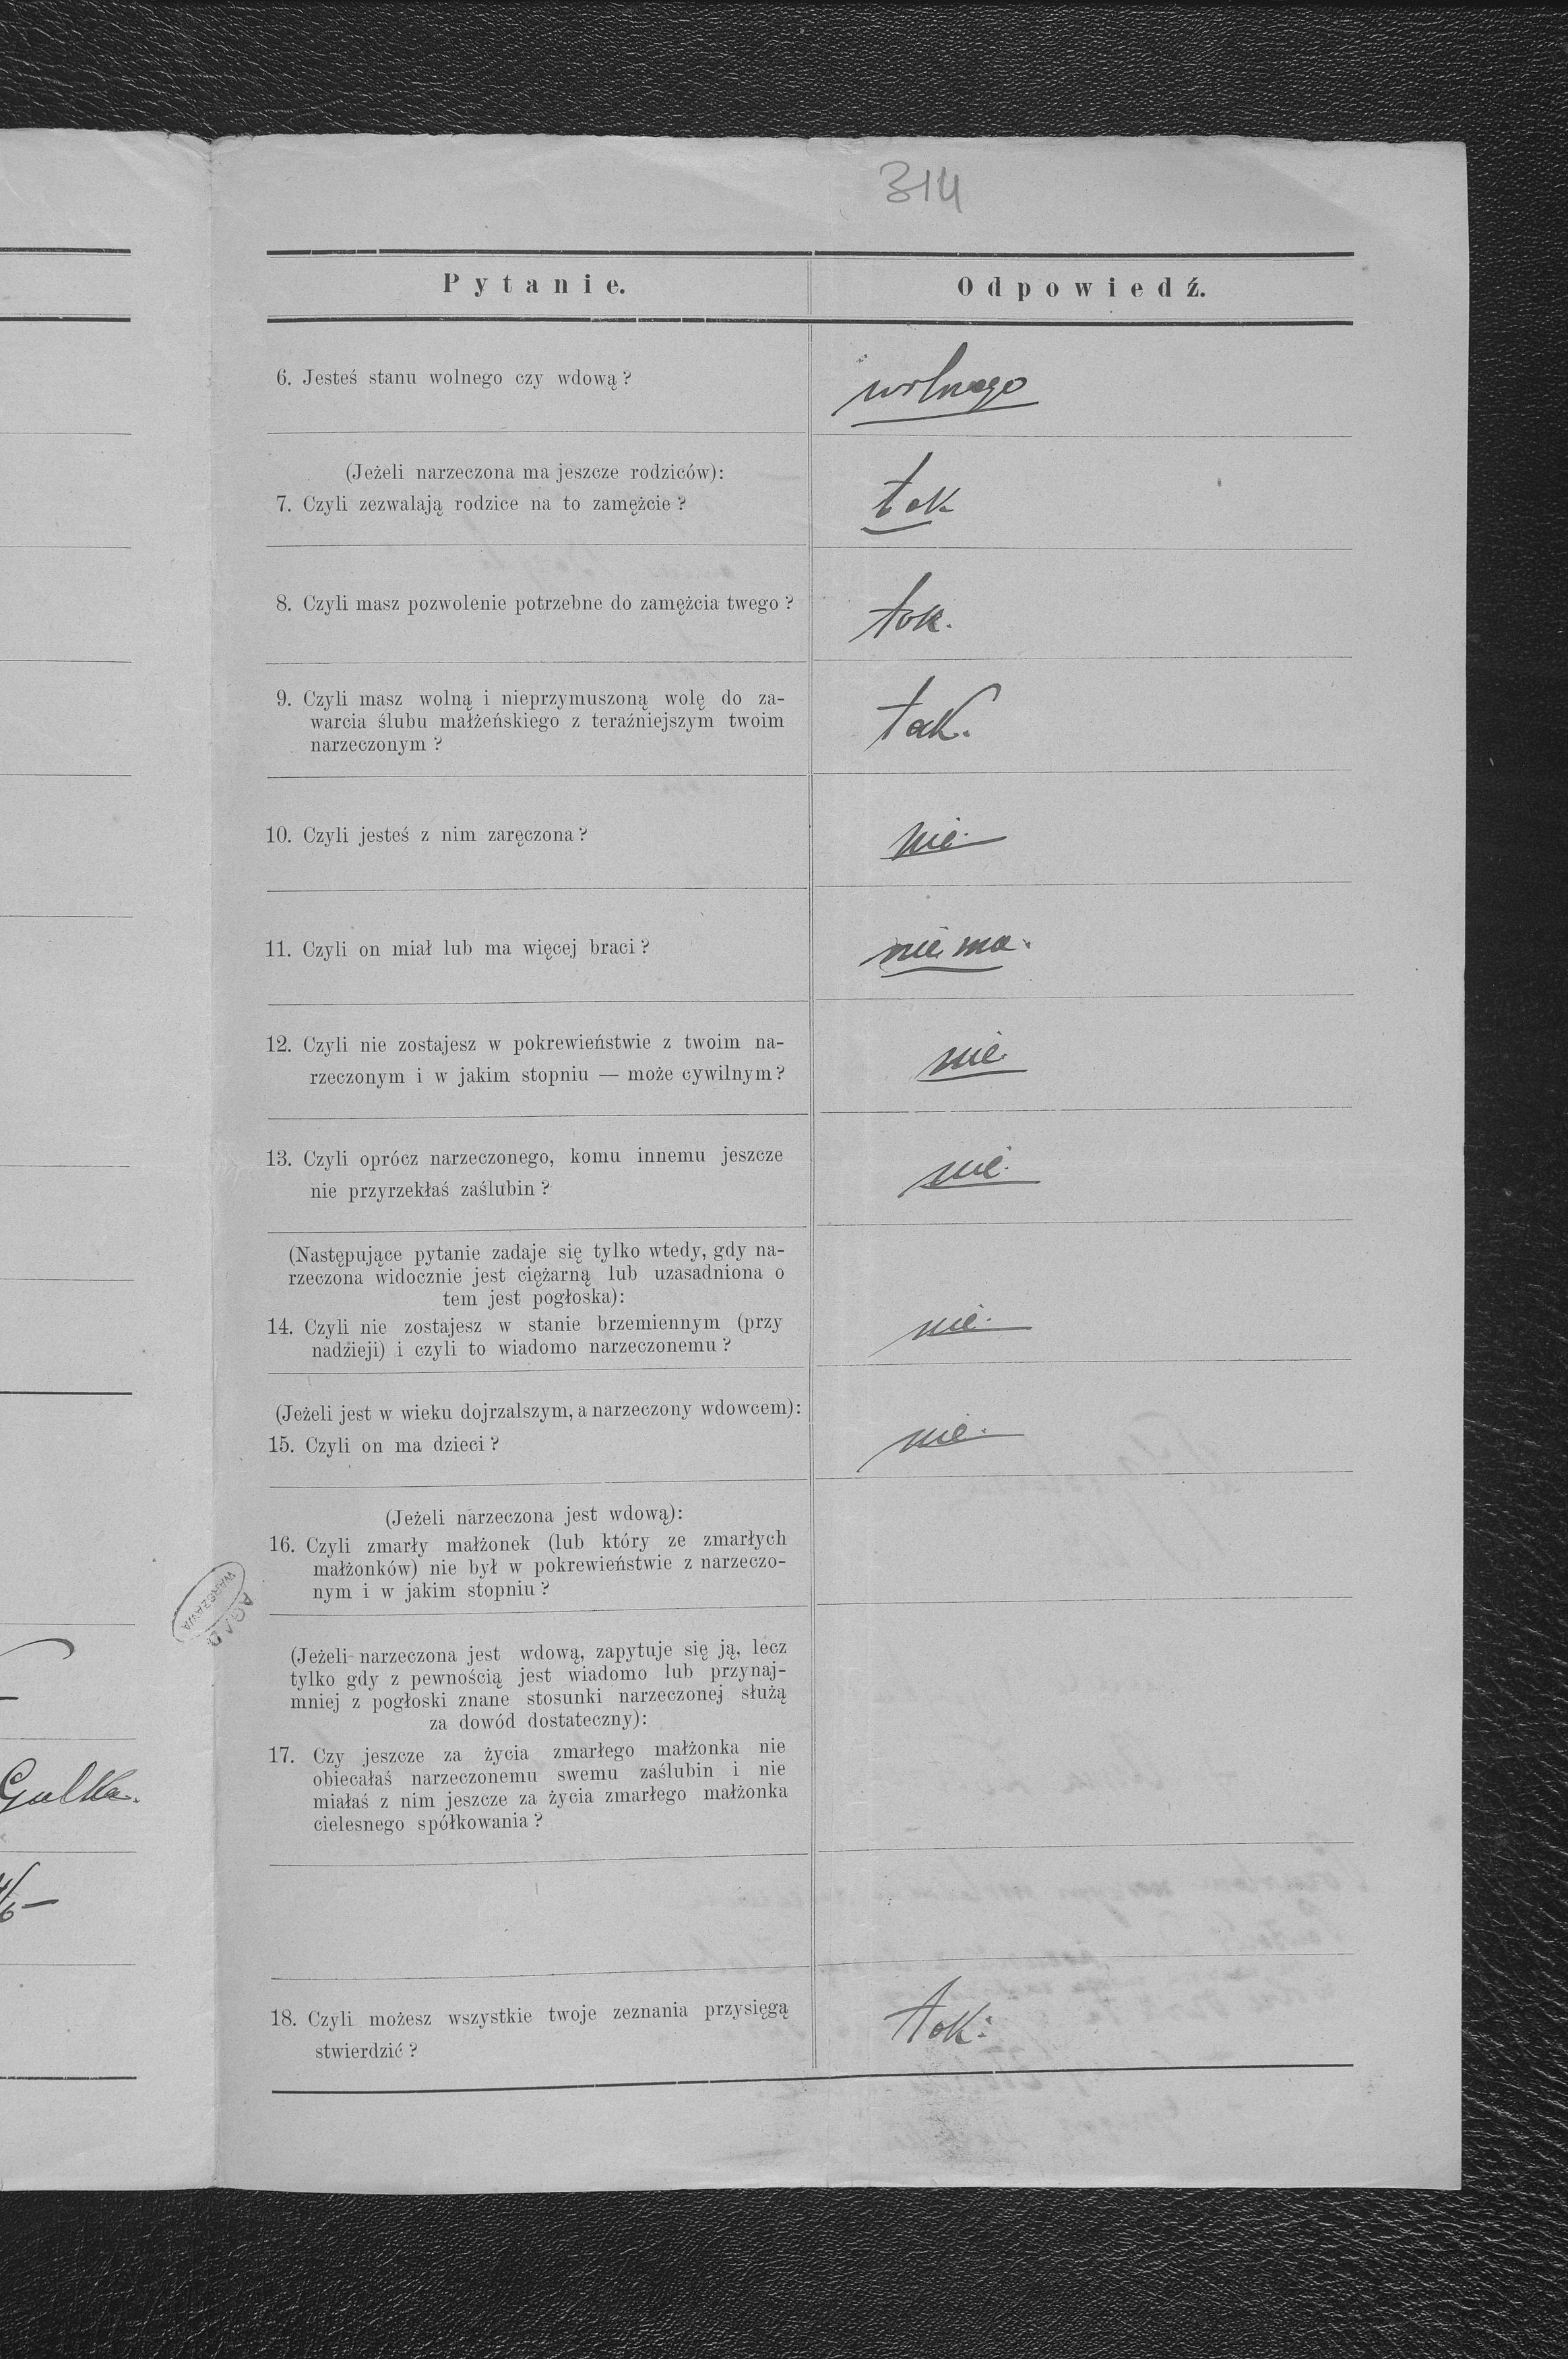 314
Pytanie.
Odpowiedź.
6. Jesteś stanu wolnego czy wdową?
wolnego
(Jeżeli narzeczona ma jeszcze rodziców):
7. Czyli zezwalają rodzice na to zamężcie?
tak
8. Czyli masz pozwolenie potrzebne do zamężcia twego?
tak.
9. Czyli masz wolną i nieprzymuszoną wolę do za-
warcia ślubu małżeńskiego z teraźniejszym twoim
narzeczonym?
tak.
10. Czyli jesteś z nim zaręczona?
nie
11. Czyli on miał lub ma więcej braci?
nie ma.
12. Czyli nie zostajesz w pokrewieństwie z twoim na-
rzeczonym i w jakim stopniu — może cywilnym?
nie
13. Czyli oprócz narzeczonego, komu innemu jeszcze
nie przyrzekłaś zaślubin?
nie
(Następujące pytanie zadaje się tylko wtedy, gdy na-
rzeczona widocznie jest ciężarną lub uzasadniona o
tem jest pogłoska):
14. Czyli nie zostajesz w stanie brzemiennym (przy
nadzieji) i czyli to wiadomo narzeczonemu?
nie
(Jeżeli jest w wieku dojrzalszym, a narzeczony wdowcem):
15. Czyli on ma dzieci?
nie
(Jeżeli narzeczona jest wdową):
16. Czyli zmarły małżonek (lub który ze zmarłych
małżonków) nie był w pokrewieństwie z narzeczo-
nym i w jakim stopniu?
AGAD
WARSZAWA
(Jeżeli narzeczona jest wdową, zapytuje się ją, lecz
tylko gdy z pewnością jest wiadomo lub przynaj-
mniej z pogłoski znane stosunki narzeczonej służą
za dowód dostateczny):
17. Czy jeszcze za życia zmarłego małżonka nie
obiecałaś narzeczonemu swemu zaślubin i nie
miałaś z nim jeszcze za życia zmarłego małżonka
cielesnego spółkowania?
18. Czyli możesz wszystkie twoje zeznania przysięgą
stwierdzić?
tak